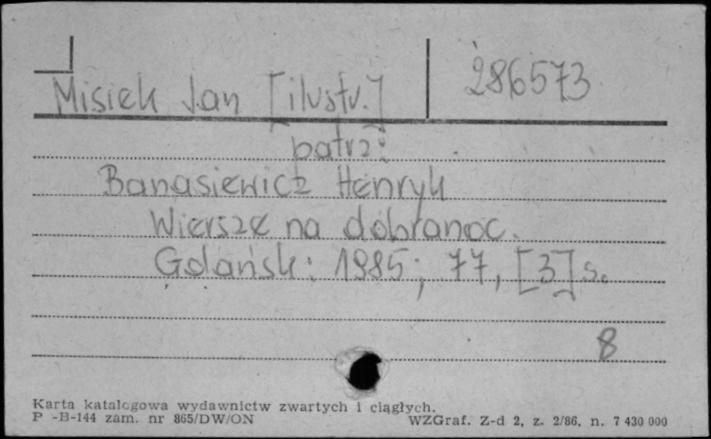 Misiek Jan [ilustr.] 286573
patrz:
Banasiewicz Henryk
Wiersze na dobranoc.
Gdańsk: 1985; 77, [3] s.
8
Karta katalogowa wydawnictw zwartych i ciągłych.
P -B-144 zam. nr 865/DW/ON WZGraf. Z-d 2, z. 2/86, n. 7 430 000